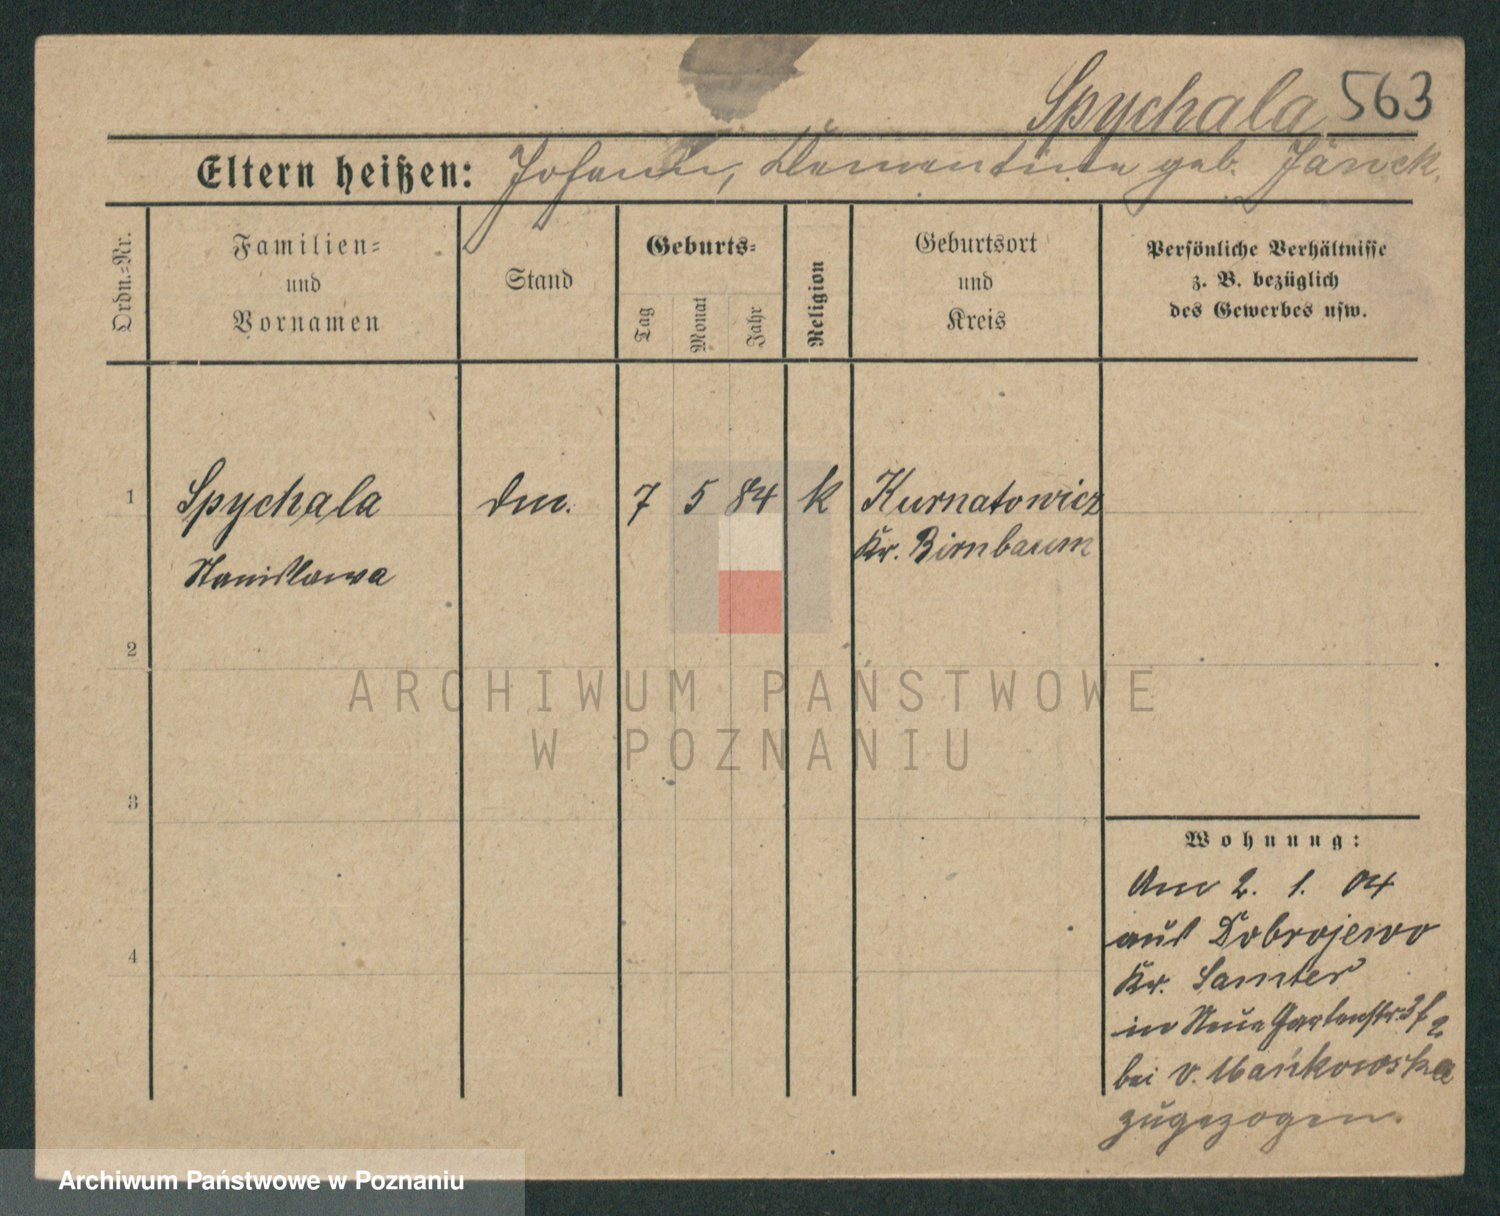 Spychala 563
Eltern heißen: Johann, Clementine geb. Jäsiek.
Ordn.-Nr.
Familien-
und
Vornamen
Stand
Geburts-
Tag
Monat
Jahr
Religion
Geburtsort
und
Kreis
Persönliche Verhältnisse
z. B. bezüglich
des Gewerbes usw.
1 Spychala 7 5 84 k Kurnatowicz
Stanislawa Kr. Birnbaum
2
ARCHIWUM PAŃSTWOWE
W POZNANIU
3
4
Wohnung:
Am 2. 1. 04
aus Dobrojewo
Kr. Samter
in Neue Gartenstr.
bei v. Mańkowska
zugezogen.
Archiwum Państwowe w Poznaniu